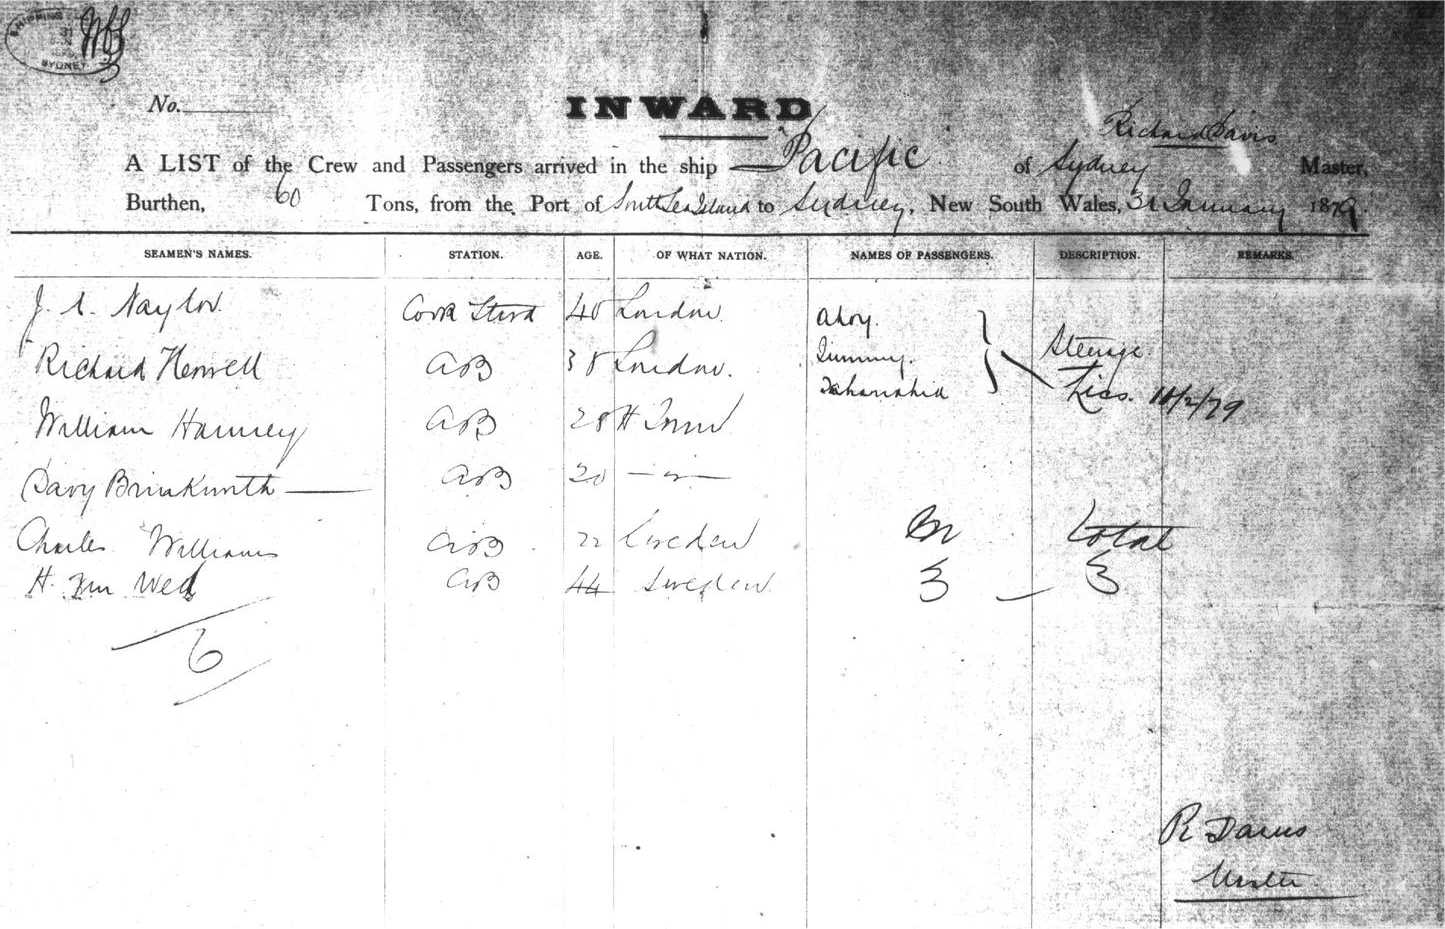 SHIPPING
SYDNEY
No.
INWARD
Richard Davis
A LIST of the Crew and Passengers arrived in the ship Pacific of Sydney Master,
Burthen, 60 Tons, from the Port of South Sea Island to Sydney, New South Wales, 31 January 1879.
SEAMEN'S NAMES. STATION. AGE. OF WHAT NATION. NAMES OF PASSENGERS. DESCRIPTION. REMARKS.
Naylor 40 London Ahoy.
Jimmy. Steerage
Richard AB 38 London.
11/2/79
William AB 28
Davy Brinkworth AB 20
Total
Charles Williams AB 22 Sweden
H. AB 44 Sweden 3 3
6
R Davis
Master